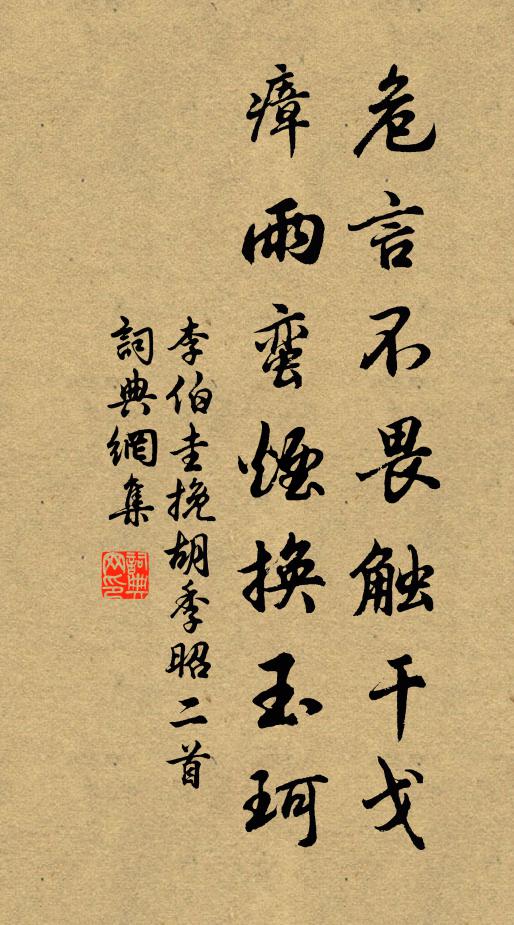 危言不畏触干戈
瘴雨蛮煙换玉珂
李伯圭挽胡季昭二首
詞典網集
詞典网印